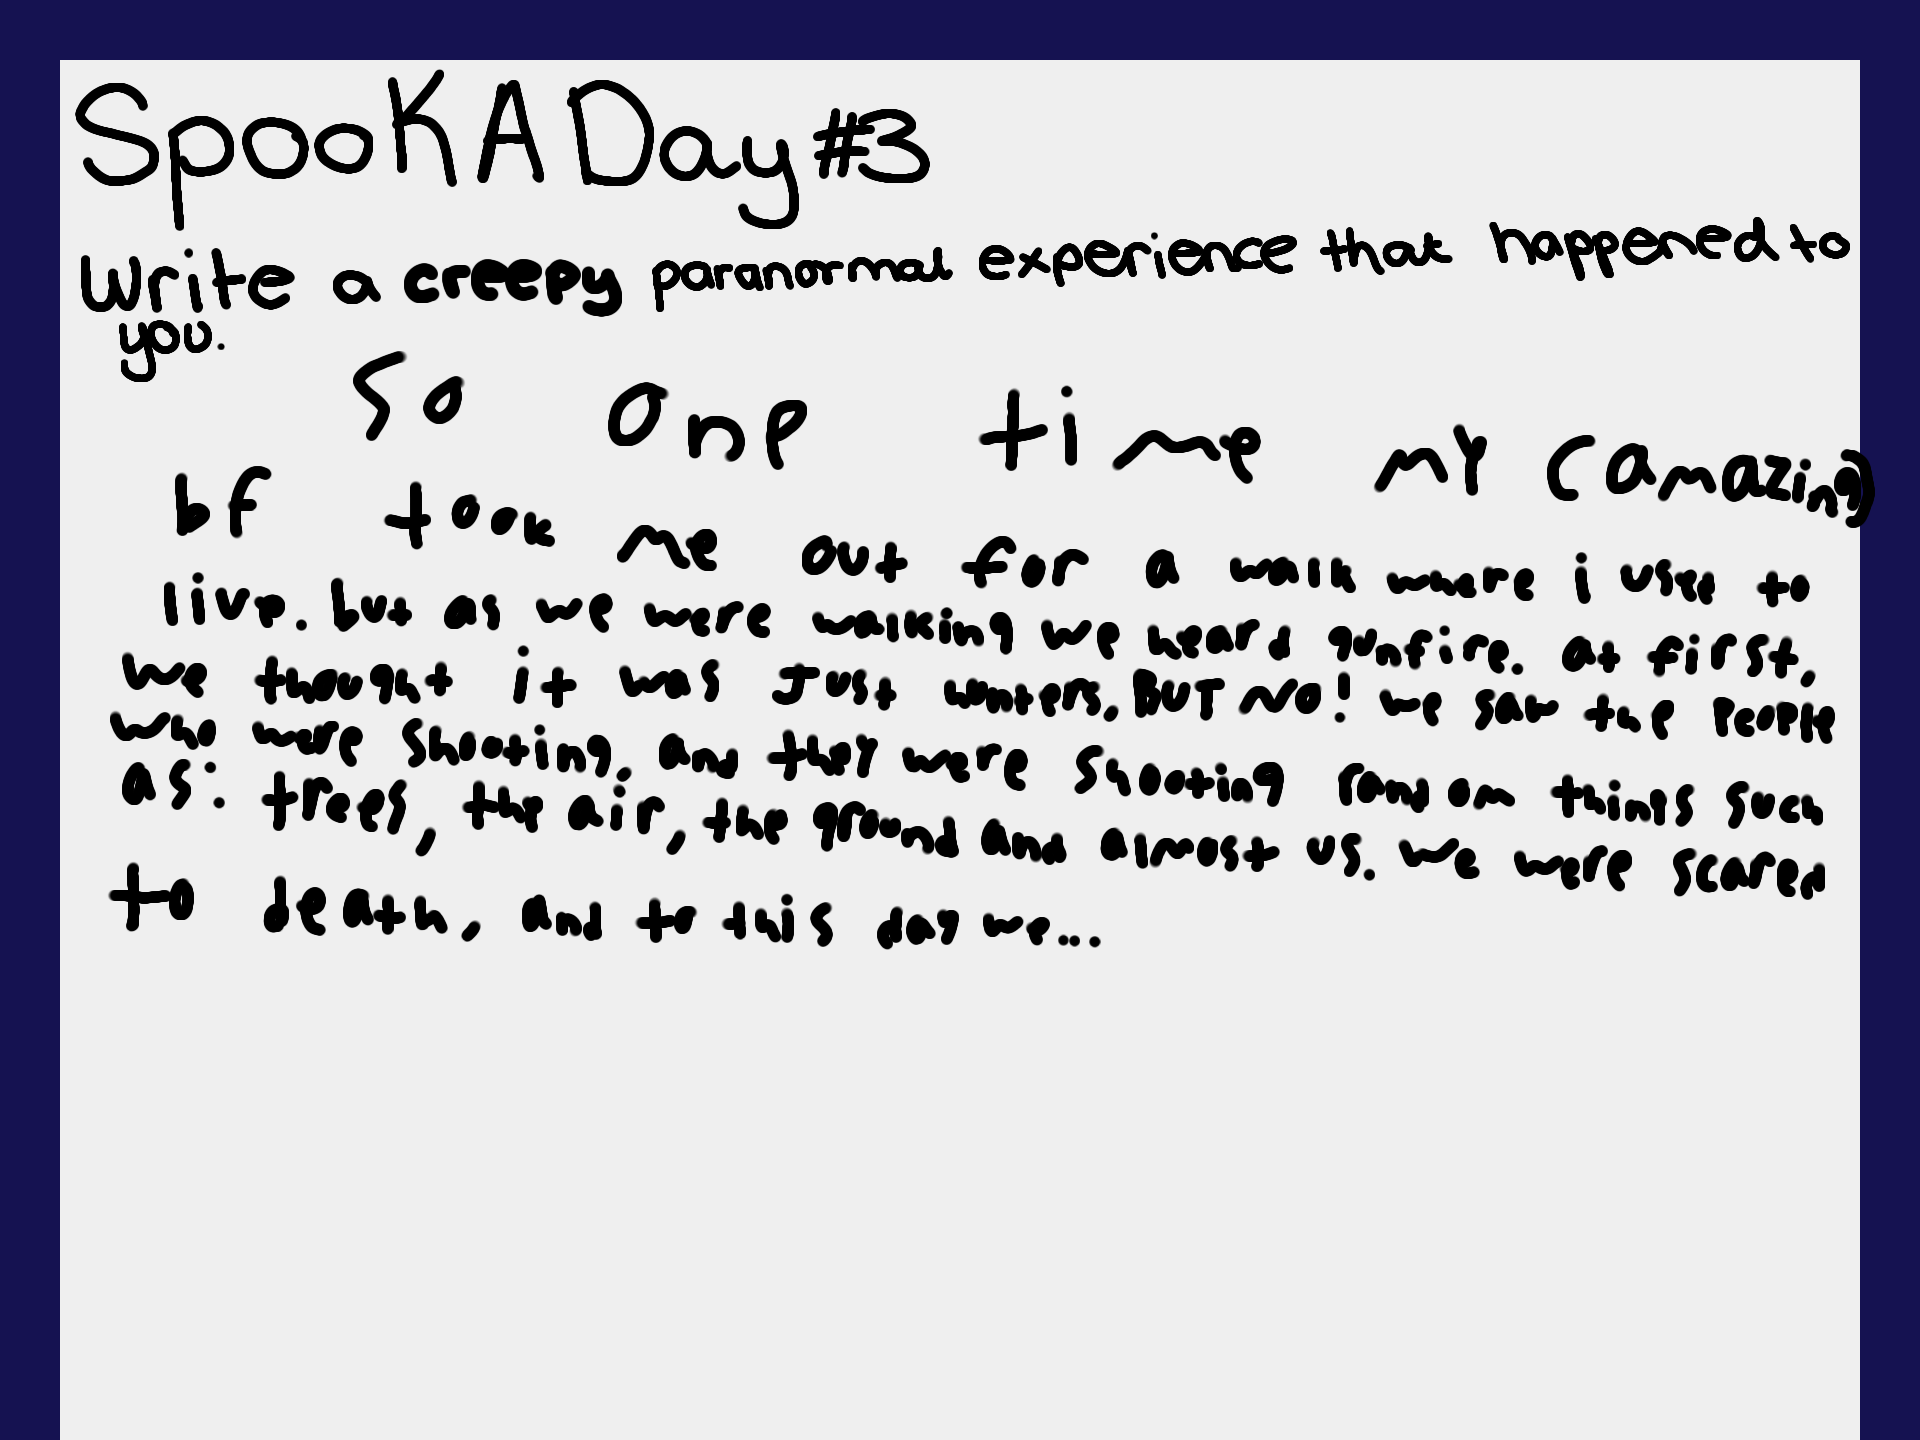 SpooKADay #3
Write a creepy paranormal experience that happened to
you.
So one time my (amazing)
bf took me out for a walk where i used to
live. but as we were walking we heard gunfire. at first,
we thought it was Just hunters. BUT NO! we saw the people
who were shooting. and they were shooting random things such
as: trees, the air, the ground and almost us. we were scared
to death, and to this day we...